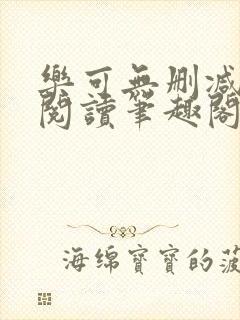 樂可無刪減
閱讀筆趣閣
海绵寶寶的菠